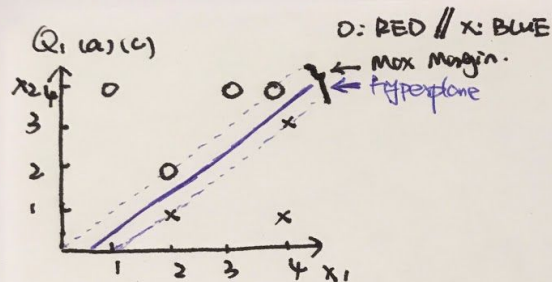 O: RED // X: BLUE
Q1 (a) (c)
← Max Margin.
← Hyperplane
X2
4
3
2
1
1 2 3 4 X1